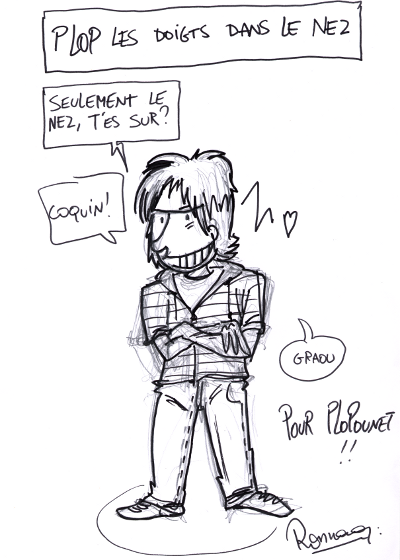 PLOP LES DOIGTS DANS LE NEZ
SEULEMENT LE
NEZ, T'ES SUR?
COQUIN!
GRAOU
POUR PLOPOUNET
!!